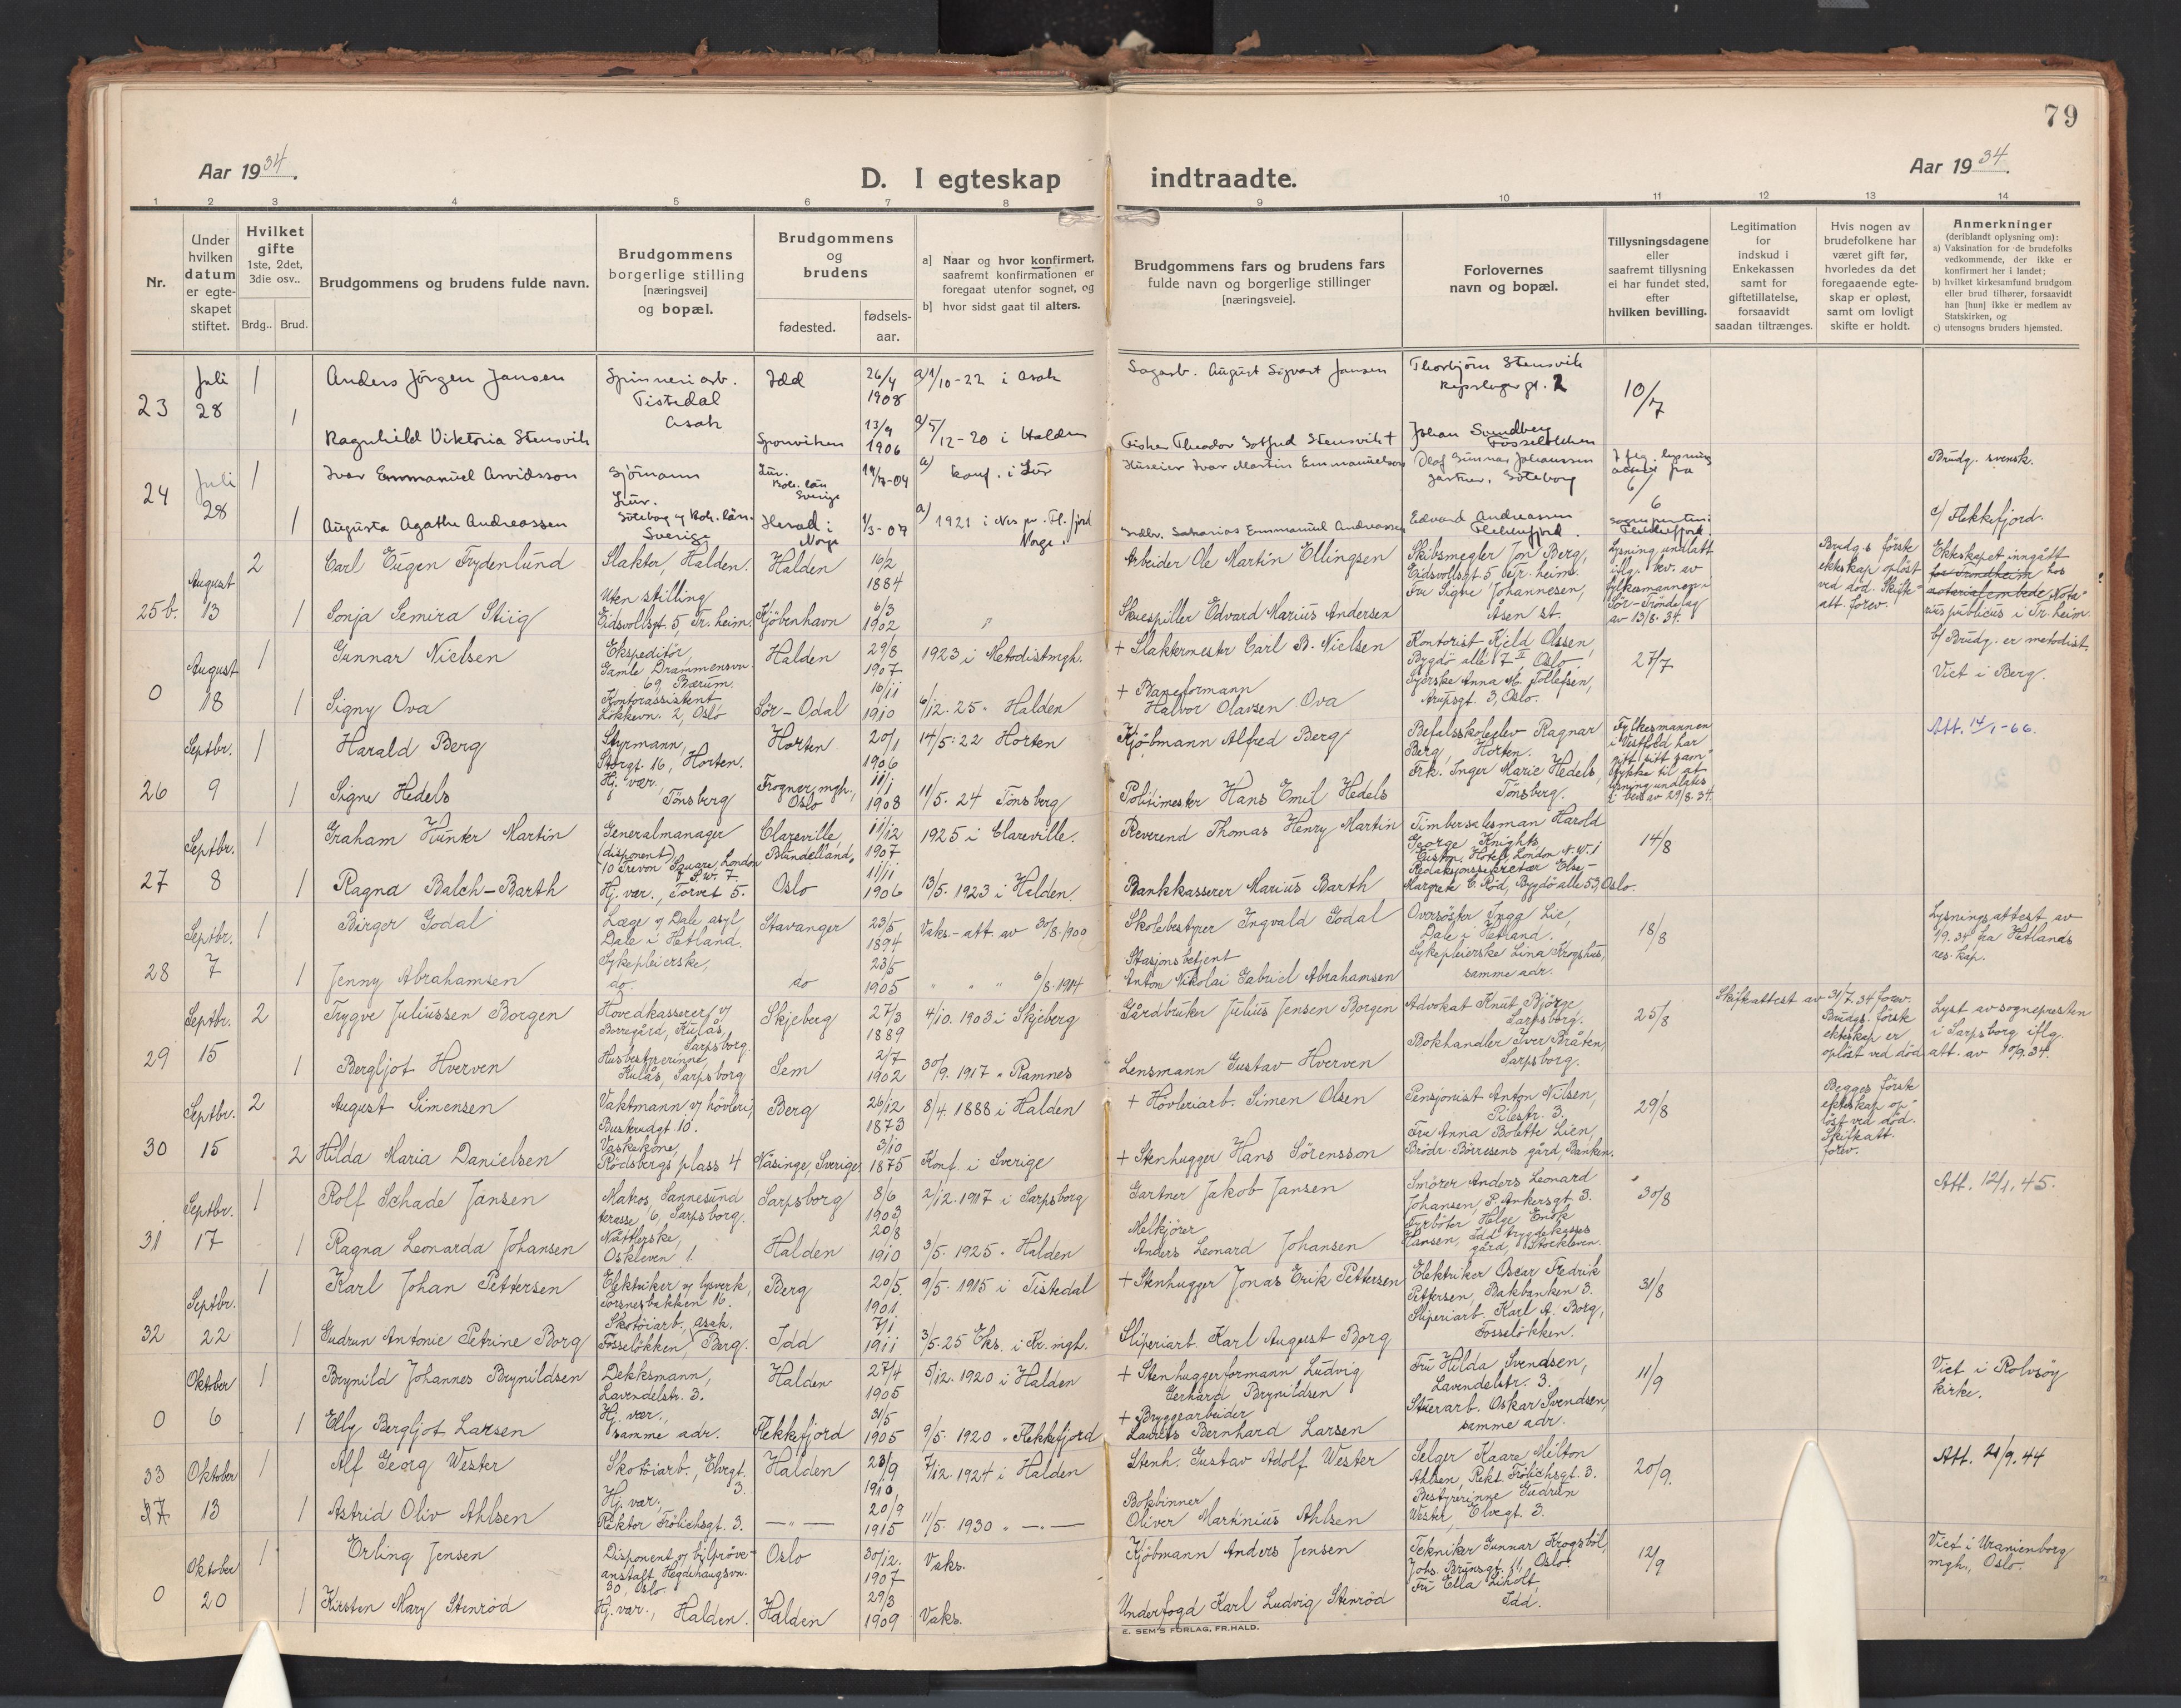 79
Aar 1934.
D. I egteskap indtraadte.
Aar 1934.
1 2 3 4 5 6 7 8 9 10 11 12 13 14
Nr.
Under hvilken datum er egte-skapet stiftet.
Hvilket gifte
1ste, 2det, 3die osv..
Brdg.. Brud.
Brudgommens og brudens fulde navn.
Brudgommens borgerlige stilling [næringsvei] og bopæl.
Brudgommens og brudens
fødested.
fødsels-aar.
a] Naar og hvor konfirmert, saafremt konfirmationen er foregaat utenfor sognet, og
b] hvor sidst gaat til alters.
Brudgommens fars og brudens fars fulde navn og borgerlige stillinger [næringsveie].
Forlovernes navn og bopæl.
Tillysningsdagene eller saafremt tillysning ei har fundet sted, efter hvilken bevilling.
Legitimation for indskud i Enkekassen samt for giftetillatelse, forsaavidt saadan tiltrænges.
Hvis nogen av brudefolkene har været gift før, hvorledes da det foregaaende egte-skap er opløst, samt om lovligt skifte er holdt.
Anmerkninger
(deriblandt oplysning om):
a) Vaksination for de brudefolks vedkommende, der ikke er konfirmert her i landet;
b) hvilket kirkesamfund brudgom eller brud tilhører, forsaavidt han [hun] ikke er medlem av Statskirken, og
c) utensogns bruders hjemsted.
23 Juli 28 1 Anders Jörgen Jansen Spinneriarb. Tistedal Asak Idd 26/4 1908 a) 1/10-22 i Asak Sagarb. August Sigvart Jansen Thorbjörn Stensvik Repslagergt. 2 10/7
1 Ragnhild Viktoria Stensvik Sponviken 13/9 1906 a) 5/12-20 i Halden Fisker Theodor Gotfred Stensvik + Johan Svendberg Fosselökken
24 Juli 28 1 Ivar Emmanuel Arvidsson Sjömann Lur. Göteborg og Boh. län. Sverige Lur. Boh. län Sverige 19/7-04 a) konf. i Lur Huseier Ivar Martin Emmanuelson Olaf Gunnar Johanssen gartner, Göteborg 6/6 Brudg. svensk.
1 Augusta Agathe Andreassen Herad i Norge 1/3-07 a) 1921 i Nes pr. Fl.fjord Norge. Sakarias Emmanuel Andreassen Edvard Andreassen Flekkefjord. c/ Flekkefjord.
25b. August 13 2 Carl Eugen Frydenlund Slakter, Halden. Halden 16/2 1884 Arbeider Ole Martin Ellingsen Skibsmegler Jon Berg, Eidsvollsgt. 5 Tr. heim. Lysning unnlatt iflg. bev. av fylkesmannen i Sör-Tröndelag av 13/8. 34. Brudg.s förste ekteskap oplöst ved död. Skifte-att. forev. Ekteskapet inngått for Trondheim hos notarialembede Nota-rius publicus i Tr. heim.
1 Sonja Semira Stiig Uten stilling Eidsvollsgt. 5, Tr. heim. Kjöbenhavn 6/3 1902 " Skuespiller Edvard Marius Andersen Fru Signe Johannesen, Åsen st.
0 August 18 1 Gunnar Nielsen Ekspeditör, Gamle Drammensvn. 69, Bærum. Halden 29/8 1907 1923 i Metodistmgh. + Slaktermestr Carl B. Nielsen Kontorist Kjeld Olssen, Bygdö allé 7 II Oslo. 27/7 b/ Brudg. er metodist. Viet i Berg.
1 Signy Ova Kontorassistent Lökkevn. 2, Oslo Sör-Odal 16/11 1910 6/12. 25 " Halden + Baneformann Halvor Olavsen Ova Syerske Anna M. Tollefsen, Arupsgt. 3, Oslo.
26 Septbr. 9 1 Harald Berg Styrmann, Storgt. 16, Horten. Horten 20/1 1906 14/5. 22 Horten Kjöbmann Alfred Berg Befalsskoleelev Ragnar Berg, Horten. Fylkesmannen i Vestfold har gitt sitt sam-tykke til at lysning undlates i bev. av 29/8. 34. Att. 14/1-66.
1 Signe Hedels Hj. vær. Tönsberg Frogner mgh., Oslo 11/1 1908 11/5. 24 Tönsberg Politimester Hans Emil Hedels Frk. Inger Marie Hedels Tönsberg.
27 Septbr. 8 1 Graham Hunter Martin Generalmanager (disponent) 10 Trevon Square, London S.W. 7. Clareville, 11/12 1907 1925 i Clareville. Reverend Thomas Henry Martin Timbersalesman Harold George Knights, Euston Hotel, London N.W. 1 14/8
1 Ragna Balch-Barth Hj. vær., Torvet 5. Oslo 11/11 1906 13/5. 1923 i Halden. Bankkasserer Marius Barth Redaksjonssekretær Else-Margrete C. Röd, Bygdö alle 53, Oslo.
28 Septbr. 7 1 Birger Godal Læge v/ Dale asyl Dale i Hetland. Stavanger 23/5 1894 Vaks.-att. av 30/8. 1900 Skolebestyrer Ingvald Godal Oversöster Inga Lie, Dale i Hetland. 18/8 Lysningsattest av 1/9.34 fra Hetlands res. kap.
1 Jenny Abrahamsen Sykepleierske, do. do 23/5 1905 " " " 6/8. 1914 Stasjonsbetjent Anton Nikolai Gabriel Abrahamsen Sykepleierske Lina Krogshus, samme adr.
29 Septbr. 15 2 Trygve Juliussen Borgen Hovedkasserer v/ Borregård, Kulås, Sarpsborg. Skjeberg 27/3 1889 4/10. 1903 i Skjeberg Gårdbruker Julius Jensen Borgen Advokat Knut Bjørge Sarpsborg. 25/8 Skifteattest av 31/7. 34 forev. Brudgs. förste ekteskap er oplöst ved död Lyst av sognepresten i Sarpsborg iflg. att. av 10/9. 34.
1 Bergljot Hverven Husbestyrerinne, Kulås, Sarpsborg Sem 2/7 1902 30/9. 1917 " Ramnes Lensmann Gustav Hverven Bokhandler Iver Bråten, Sarpsborg.
30 Septbr. 15 2 August Simensen Vaktmann v/ hövleri, Busterudgt. 10. Berg 26/12 1873 8/4. 1888 i Halden + Hövleriarb. Simen Olsen Pensjonist Anton Nilsen, Pilestr. 3. 29/8 Begges förste ekteskap op-löst ved död. Skifteatt. forev.
2 Hilda Maria Danielsen Vaskekone, Rödsbergs plass 4 Näsinge, Sverige. 3/10 1875 Konf. i Sverige + Stenhugger Hans Sörensson Fru Anna Bolette Lien, Brödr. Börresens gård, Banken.
31 Septbr. 17 1 Rolf Schade Jansen Makos, Sannesund terasse 6, Sarpsborg. Sarpsborg 8/6 1903 2/12. 1917 i Sarpsborg Gartner Jakob Jansen Smörer Anders Leonard Johansen, P. Ankersgt. 3. 30/8 Att. 12/1. 45.
1 Ragna Leonarda Johansen Nåtlerske, Oskleven 1. Halden 20/8 1910 3/5. 1925 " Halden Melkjörer Anders Leonard Johansen Fyrböter Helge Enok Hansen, Idd trygdekasses gård, Stockleven.
32 Septbr. 22 1 Karl Johan Pettersen Elektriker v/ lysverk, Torsnesbakken 16. Berg 20/5. 1901 9/5. 1915 i Tistedal + Stenhugger Jonas Erik Pettersen Elektriker Oscar Fredrik Pettersen, Bakbanken 3. 31/8
1 Gudrun Antonie Petrine Borg Skotöiarb., Asak. Fosselökken, Berg. Idd 7/1 1911 3/5. 25 Eks. i Fr. mgh. Sliperiarb. Karl August Borg Sliperiarb. Karl A. Borg, Fosselökken.
0 Oktober 6 1 Brynild Johannes Brynildsen Dekksmann, Lavendelstr. 3. Halden 27/4 1905 5/12. 1920 i Halden + Stenhuggerformann Ludvig Gerhard Brynildsen Fru Hilda Svendsen, Lavendelstr. 3. 11/9 Viet i Rolvsöy kirke.
1 Elly Bergljot Larsen Hj. vær., samme adr. Flekkefjord 31/5 1905 9/5. 1920 " Flekkefjord + Bryggearbeider Laurits Bernhard Larsen Stuerarb. Oskar Svendsen, samme adr.
33 Oktober 13 1 Alf Georg Wester Skotöiarb., Elvegt. 3. Halden 23/9 1910 7/12. 1924 i Halden Stenh. Gustav Adolf Wester Selger Kaare Milton Ahlsen, Rekt. Frölichsgt. 3. 20/9. Att. 21/9. 44
1 Astrid Oliv Ahlsen Hj. vær., Rektor Frölichsgt. 3. —"— 20/9 1915 11/5. 1930 " —"— Bokbinner Oliver Martinius Ahlsen Bestyrerinne Gudrun Wester, Elvegt. 3.
0 Oktober 20 1 Erling Jensen Disponent v/ bilpröve-anstalt, Hegdehaugsvn. 30, Oslo. Oslo 30/12. 1907 Vaks. Kjöbmann Anders Jensen Tekniker Gunnar Krogsböl, Johs. Brunsgt. 11, Oslo. 12/9 Viet i Uranienborg mgh., Oslo.
1 Kirsten Mary Stenröd Hj. vær., Halden. Halden 29/3 1909 Vaks. Underfogd Karl Ludvig Stenröd Fru Ella Liholt, Idd.
E. SEM'S FORLAG, FR.HALD.